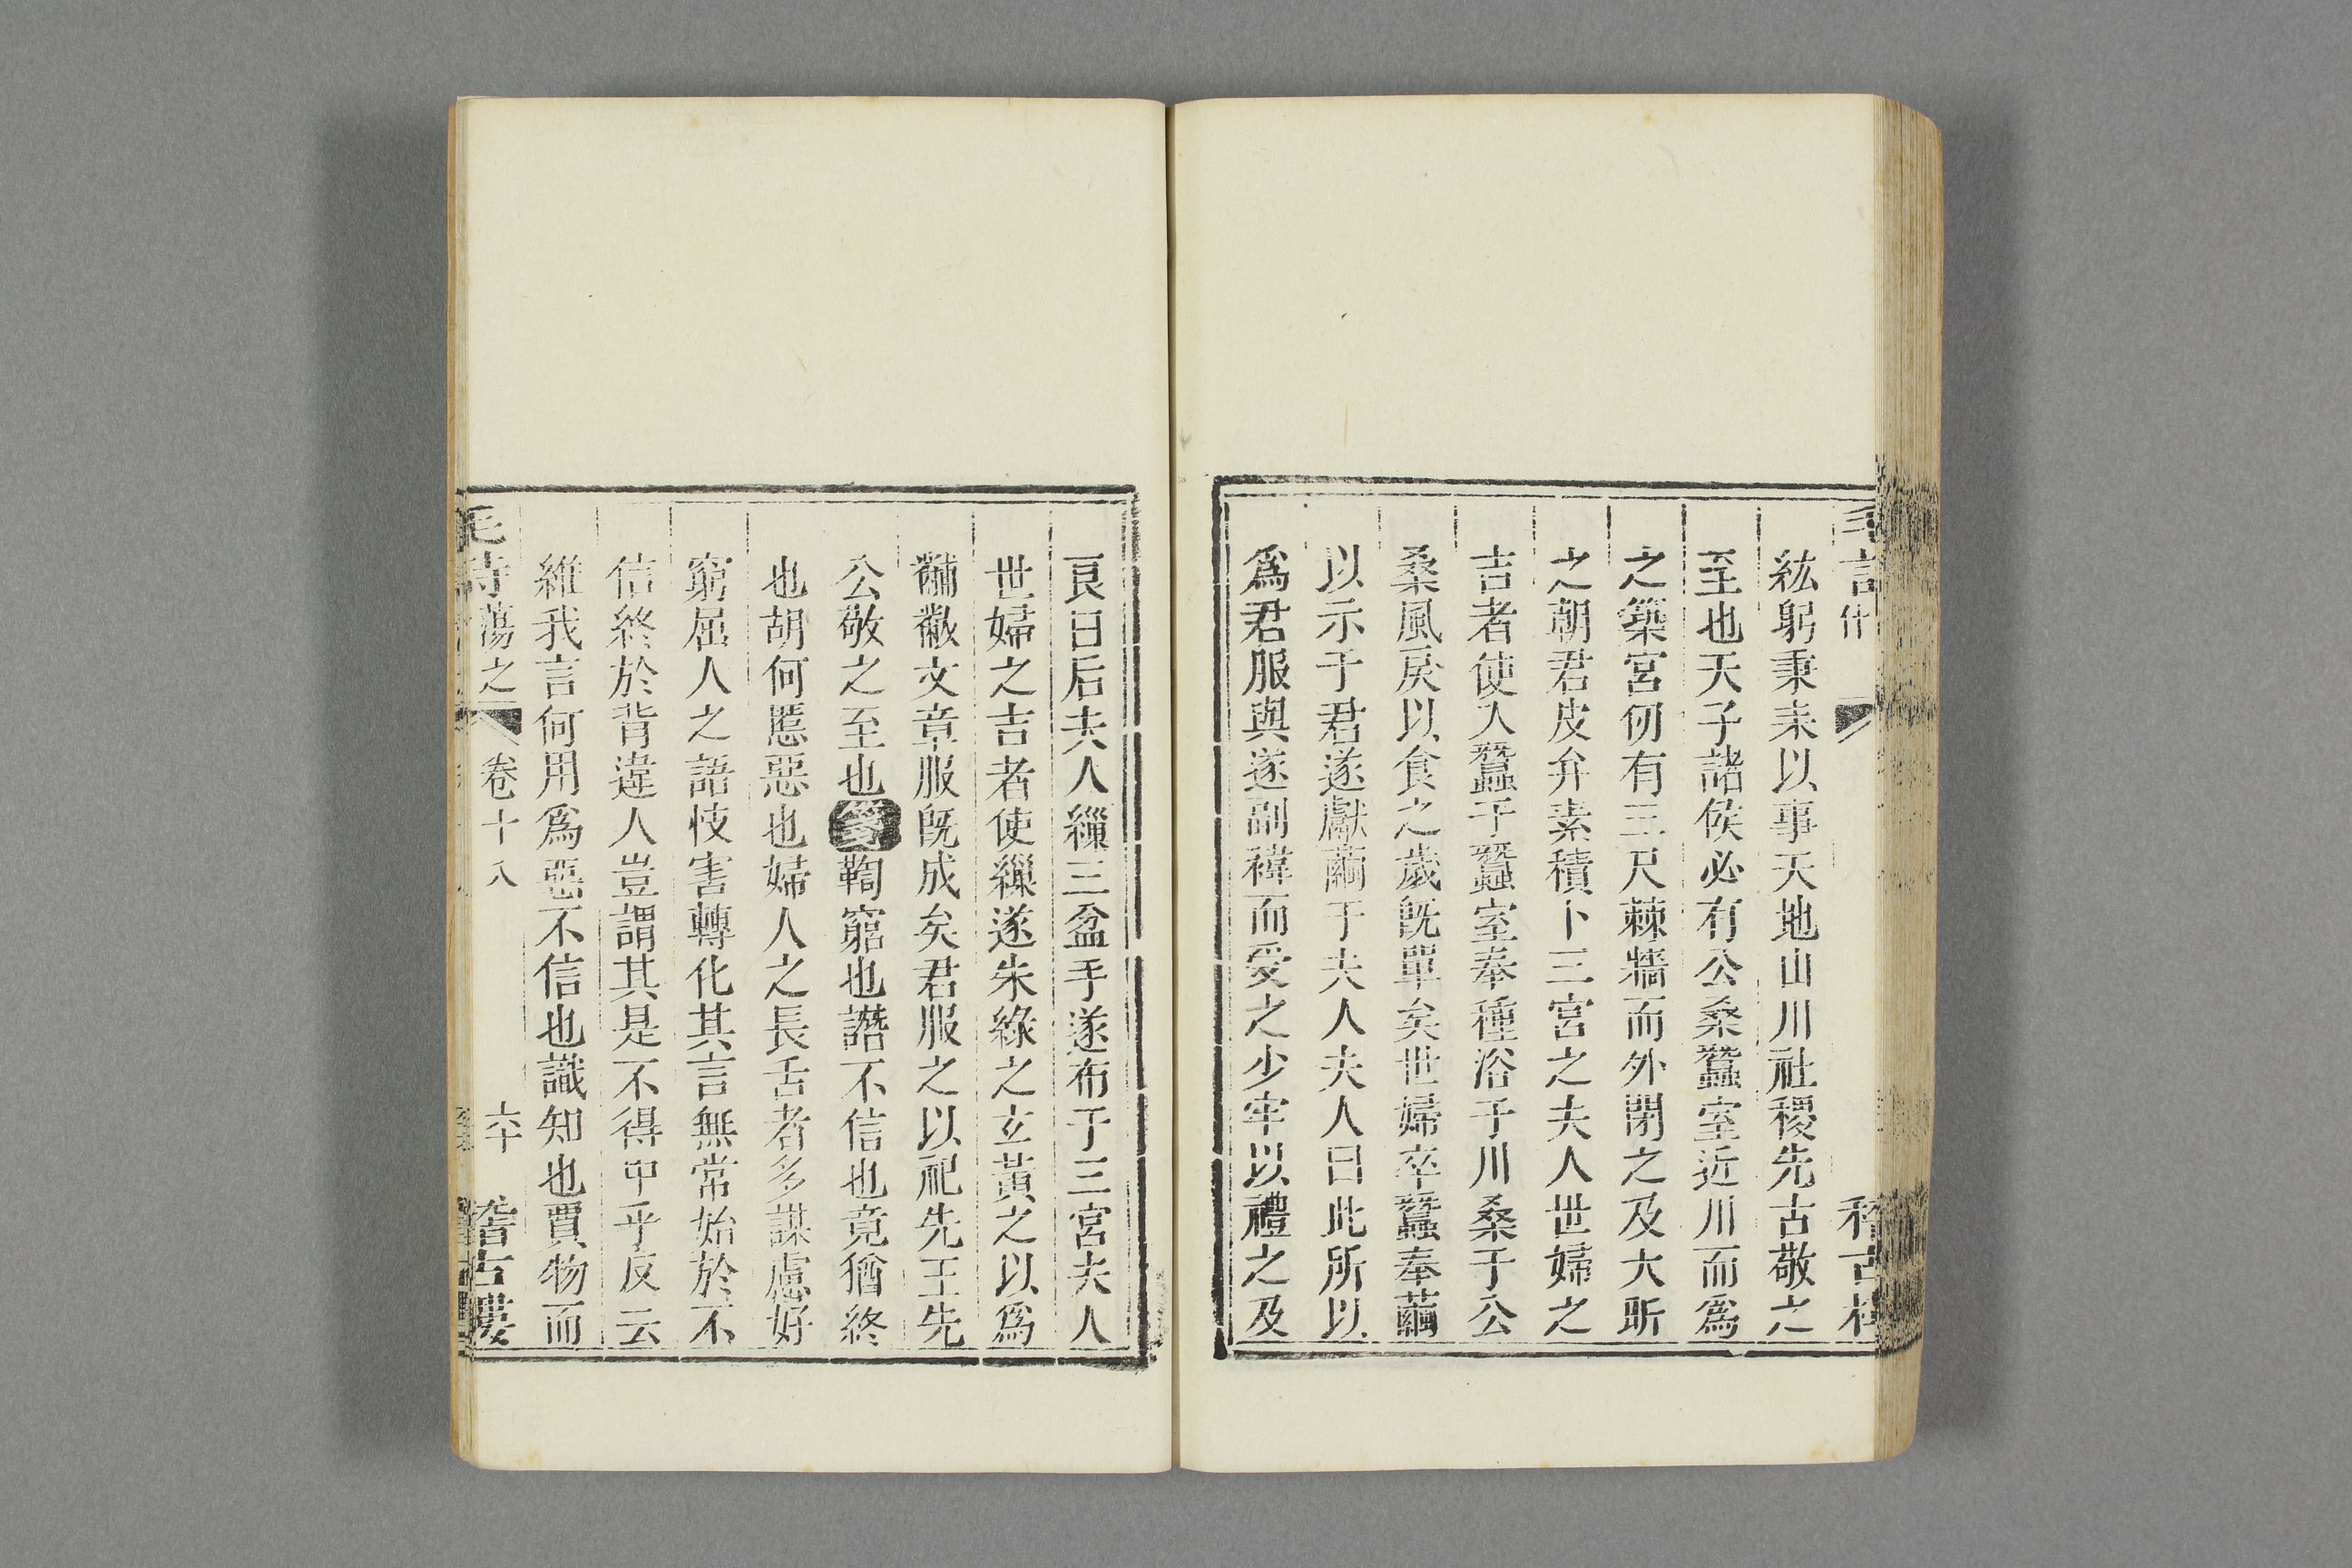 紘躬秉耒以事天地山川社稷先古敬之
至也天子諸侯必有公桑蠶室近川而爲
之築宮仞有三尺棘牆而外閉之及大昕
之朝君皮弁素積卜三宮之夫人世婦之
吉者使入蠶于蠶室奉種浴于川桑于公
桑風戾以食之歲既單矣世婦卒蠶奉繭
以示于君遂獻繭于夫人夫人曰此所以
爲君服與遂副褘而受之少牢以禮之及
良日后夫人繅三盆手遂布于三宮夫人
世婦之吉者使繅遂朱綠之玄黃之以爲
黼黻文章服既成矣君服之以祀先王先
公敬之至也箋鞫窮也譖不信也竟猶終
也胡何慝惡也婦人之長舌者多謀慮好
窮屈人之語忮害轉化其言無常始於不
信終於背違人豈謂其是不得中乎反云
維我言何用爲惡不信也識知也賈物而
毛詩蕩之 卷十八 六十 稽古樓